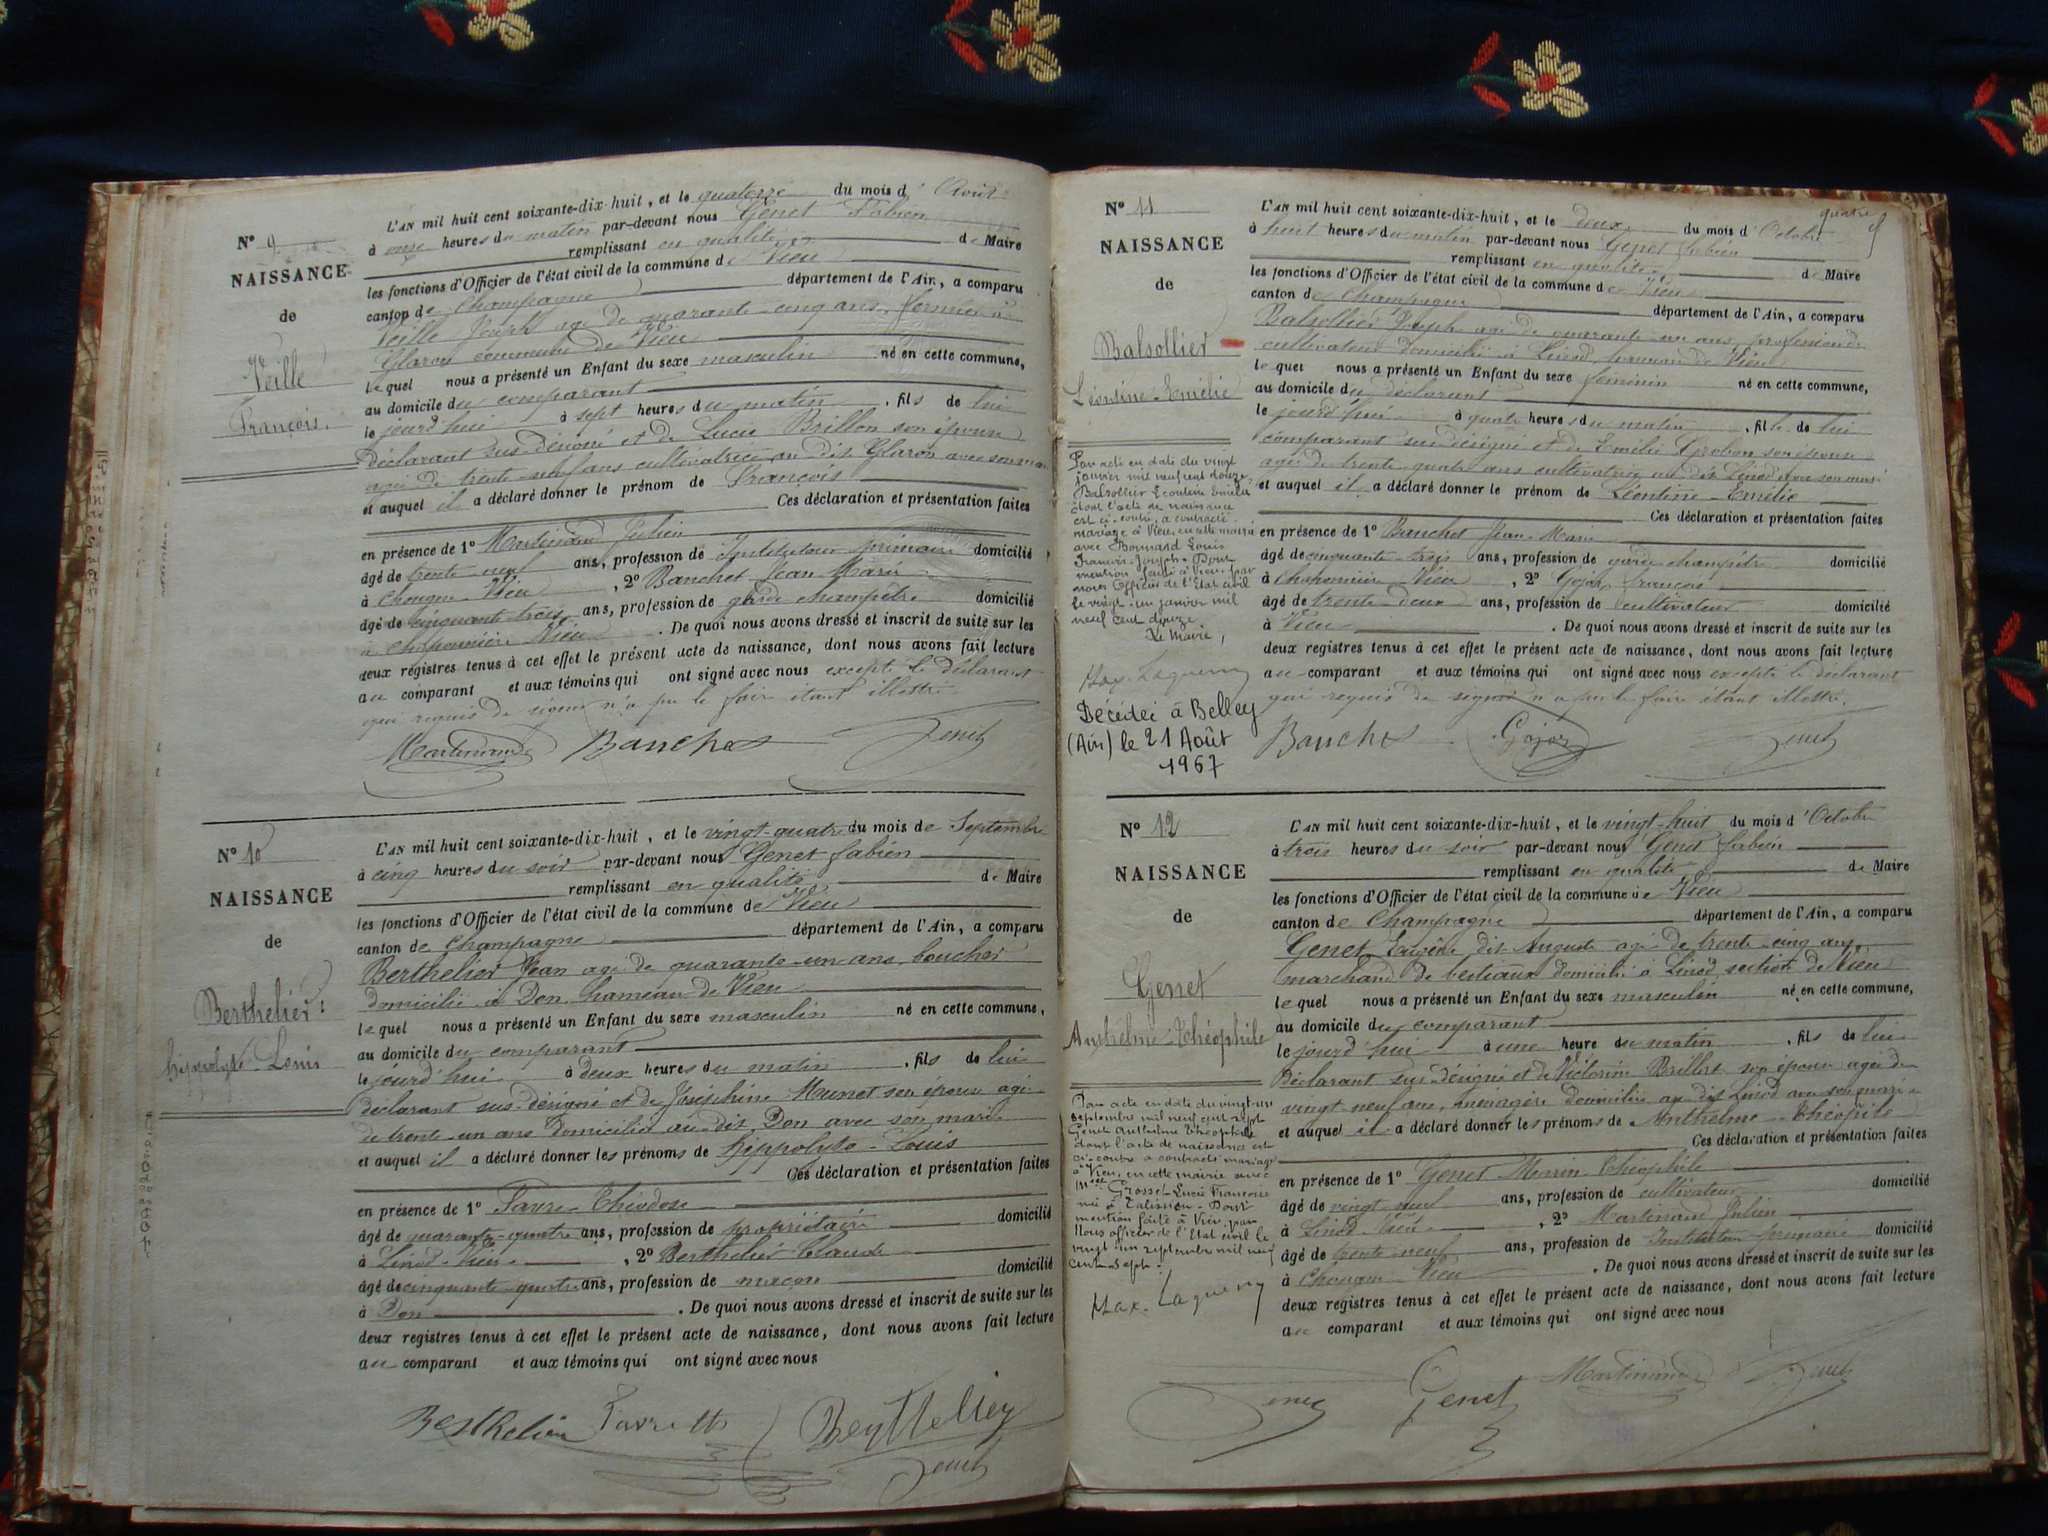 N° 9
NAISSANCE
de
Veille
François.
L'AN mil huit cent soixante-dix-huit, et le quatorze du mois d' Août
à onze heures du matin par-devant nous Genet Fabien
remplissant en qualité de Maire
les fonctions d'Officier de l'état civil de la commune de Vieu
canton de Champagne département de l'Ain, a comparu
Veille Joseph agé de quarante-cinq ans, fermier à
Glaron commune de Vieu
lequel nous a présenté un Enfant du sexe masculin né en cette commune,
au domicile du comparant
le jourd'hui à sept heures du matin, fils de lui
déclarant sus-désigné et de Lucie Brillon son épouse
agée de trente-neuf ans cultivatrice au dit Glaron avec son mari
et auquel il a déclaré donner le prénom de François
Ces déclaration et présentation faites
en présence de 1° Martinand Julien
âgé de trente-neuf ans, profession de Instituteur primaire domicilié
à Chongnes Vieu, 2° Banchet Jean-Marie
âgé de cinquante-trois ans, profession de garde champêtre domicilié
à Chaponnière Vieu. De quoi nous avons dressé et inscrit de suite sur les
deux registres tenus à cet effet le présent acte de naissance, dont nous avons fait lecture
au comparant et aux témoins qui ont signé avec nous excepté le déclarant
qui requis de signer n'a pu le faire étant illettré.
Martinand Banchet Genet
N° 10
NAISSANCE
de
Berthelier
hippolyte-Louis
L'AN mil huit cent soixante-dix-huit, et le vingt-quatre du mois de Septembre
à cinq heures du soir par-devant nous Genet fabien
remplissant en qualité de Maire
les fonctions d'Officier de l'état civil de la commune de Vieu
canton de Champagne département de l'Ain, a comparu
Berthelier Jean agé de quarante-un ans, boucher
domicilié à Don, hameau de Vieu
lequel nous a présenté un Enfant du sexe masculin né en cette commune,
au domicile du comparant
le jourd'hui à deux heures du matin, fils de lui
déclarant sus-désigné et de Joséphine Munet son épouse agée
de trente-un ans domiciliée au dit Don avec son mari
et auquel il a déclaré donner les prénoms de hippolyte-Louis
Ces déclaration et présentation faites
en présence de 1° Favre Théodose
âgé de quarante-quatre ans, profession de propriétaire domicilié
à Linod-Vieu, 2° Berthelier Claude
âgé de cinquante-quatre ans, profession de maçon domicilié
à Don. De quoi nous avons dressé et inscrit de suite sur les
deux registres tenus à cet effet le présent acte de naissance, dont nous avons fait lecture
au comparant et aux témoins qui ont signé avec nous
Berthelier Favre th Berthelier
Genet
quatre
N° 11
NAISSANCE
de
Balsollier
Léontine-Emélie
Par acte en date du vingt
janvier mil neuf cent douze,
Balsollier Léontine Emélie
dont l'acte de naissance
est ci-contre, a contracté
mariage à Vieu, en cette mairie
avec Bonnard Louis
Francis-Joseph. Dont
mention faite à Vieu par
nous Officier de l'Etat civil
le vingt-un janvier mil
neuf cent douze.
Le Maire,
Max. Laguerry
Décédée à Belley
(Ain) le 21 Août
1967
L'AN mil huit cent soixante-dix-huit, et le deux du mois d'Octobre
à huit heures du matin par-devant nous Genet fabien
remplissant en qualité de Maire
les fonctions d'Officier de l'état civil de la commune de Vieu
canton de Champagne département de l'Ain, a comparu
Balsollier Joseph agé de quarante-un ans, profession de
cultivateur domicilié à Linod, hameau de Vieu
lequel nous a présenté un Enfant du sexe féminin né en cette commune,
au domicile du déclarant
le jourd'hui à quatre heures du matin, fille de lui
comparant sus-désigné et de Emélie son épouse
agée de trente-quatre ans cultivatrice au dit Linod avec son mari
et auquel il a déclaré donner le prénom de Léontine-Emélie
Ces déclaration et présentation faites
en présence de 1° Banchet Jean-Marie
âgé de cinquante-trois ans, profession de garde champêtre domicilié
à Chaponnière Vieu, 2° Gojoz françois
âgé de trente-deux ans, profession de cultivateur domicilié
à Vieu. De quoi nous avons dressé et inscrit de suite sur les
deux registres tenus à cet effet le présent acte de naissance, dont nous avons fait lecture
au comparant et aux témoins qui ont signé avec nous excepté le déclarant
qui requis de signer n'a pu le faire étant illettré.
Banchet Gojoz Genet
N° 12
NAISSANCE
de
Genet
Anthelme-Théophile
Par acte en date du vingt-un
septembre mil neuf cent sept
Genet Anthelme Théophile
dont l'acte de naissance est
ci-contre a contracté mariage
à Vieu, en cette mairie avec
Mlle Grosset Lucie Françoise
née à Talissieu. Dont
mention faite à Vieu, par
Nous officier de l'Etat civil le
vingt-un septembre mil neuf
cent sept.
Max. Laguerry
L'AN mil huit cent soixante-dix-huit, et le vingt-huit du mois d'Octobre
à trois heures du soir par-devant nous Genet fabien
remplissant en qualité de Maire
les fonctions d'Officier de l'état civil de la commune de Vieu
canton de Champagne département de l'Ain, a comparu
Genet Eugène dit Auguste agé de trente-cinq ans,
marchand de bestiaux domicilié à Linod, section de Vieu
lequel nous a présenté un Enfant du sexe masculin né en cette commune,
au domicile du comparant
le jourd'hui à une heure du matin, fils de lui
déclarant sus-désigné et de Victorine Brillet son épouse agée de
vingt-neuf ans, ménagère domiciliée au dit Linod avec son mari
et auquel il a déclaré donner les prénoms de Anthelme-Théophile
Ces déclaration et présentation faites
en présence de 1° Genet Marin-Théophile
âgé de vingt-neuf ans, profession de cultivateur domicilié
à Linod-Vieu, 2° Martinand Julien
âgé de trente-neuf ans, profession de Instituteur primaire domicilié
à Chongnes Vieu. De quoi nous avons dressé et inscrit de suite sur les
deux registres tenus à cet effet le présent acte de naissance, dont nous avons fait lecture
au comparant et aux témoins qui ont signé avec nous
Genet Genet Martinand Genet